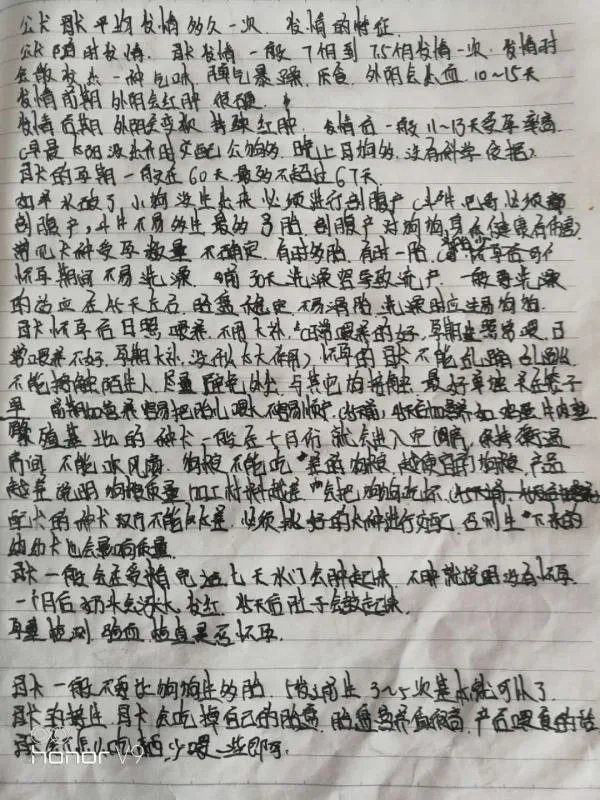 公犬 母犬 平均发情多久一次. 发情的特征.
公犬随时发情. 母犬发情一般7个月到7.5个月发情一次. 发情时
会散发点一种气味, 脾气暴躁. 厌食. 外阴会出血 10~15天
发情前期 外阴会红肿 很硬.
发情后期 外阴会变软 持续红肿. 发情后一般11~13天受孕率高.
(早晨太阳没出来时交配公狗多. 晚上母狗多. 没有科学依据)
母犬的孕期一般在60天 最多不超过67天.
如果水破了, 小狗没生出来 必须进行剖腹产 (斗牛 巴哥必须都
剖腹产, 斗牛不易多生 最多3胎. 剖腹产对狗狗身体健康有伤害)
常见犬种受孕数量 不确定. 有时多胎. 有时一胎.
怀孕期间不易洗澡. 前30天洗澡容易导致流产. 一般要洗澡
的话应在45天左右. 胎盘稳定 不易滑胎. 洗澡时应注意狗狗.
母犬怀孕后日照喂养. 不用大补. (日常喂养的好, 孕期照常喂. 日
常喂养不好. 孕期大补. 没什么太大作用) 怀孕的母犬不能乱蹦乱跳
不能接触陌生人 尽量避免外出 与其它狗接触. 最好单独关在笼子
里 前期如营养容易把胎儿喂大 不容易顺产.
繁殖基地的种犬一般在十月份就会进入空调房, 保持恒温
房间, 不能吹风扇. 狗粮不能吃普通狗粮. 越便宜的狗粮. 产品
越差 说明狗粮质量 加工材料越差 会把狗狗吃坏.
配犬的种犬双方不能太差. 必须挑好的犬种进行交配. 否则生下来的
幼犬也会影响质量.
母犬一般会在受精完 过七天 水门会肿起来. 不肿就说明没有怀孕.
一个月后 奶水会涨大 发红. 45天后肚子会鼓起来.
孕囊检测 验血 检查是否怀孕.
母犬一般不要让狗狗生多胎. 5岁之前生3~5次基本就可以了.
母犬的特性 母犬会吃掉自己的胎盘. 胎盘营养价值高. 产后喂食的话
少喂一些即可.
HONOR V9